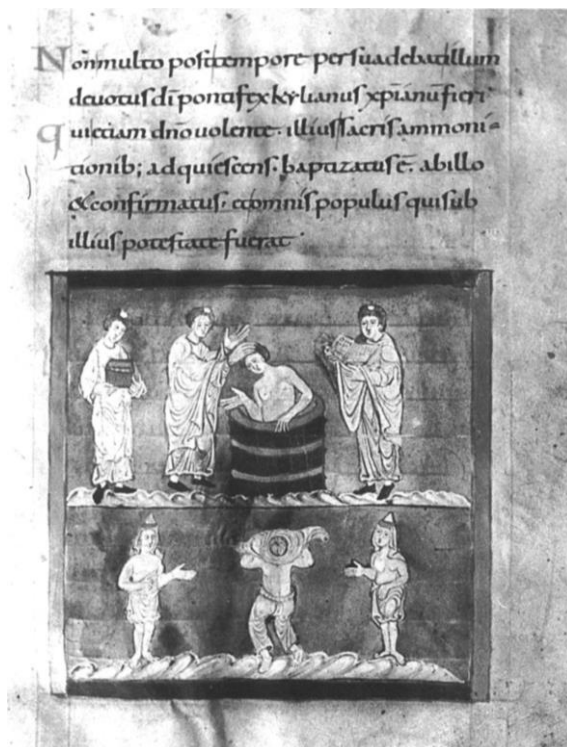 Non multo post tempore persuadebat illum
deuotus di pontifex kylianus xpianu fieri
qui etiam dno uolente. illius sacris ammoni
tionib; adquiescens. baptizatus e. ab illo
& confirmatus. et omnis populus qui sub
illius potestate fuerat